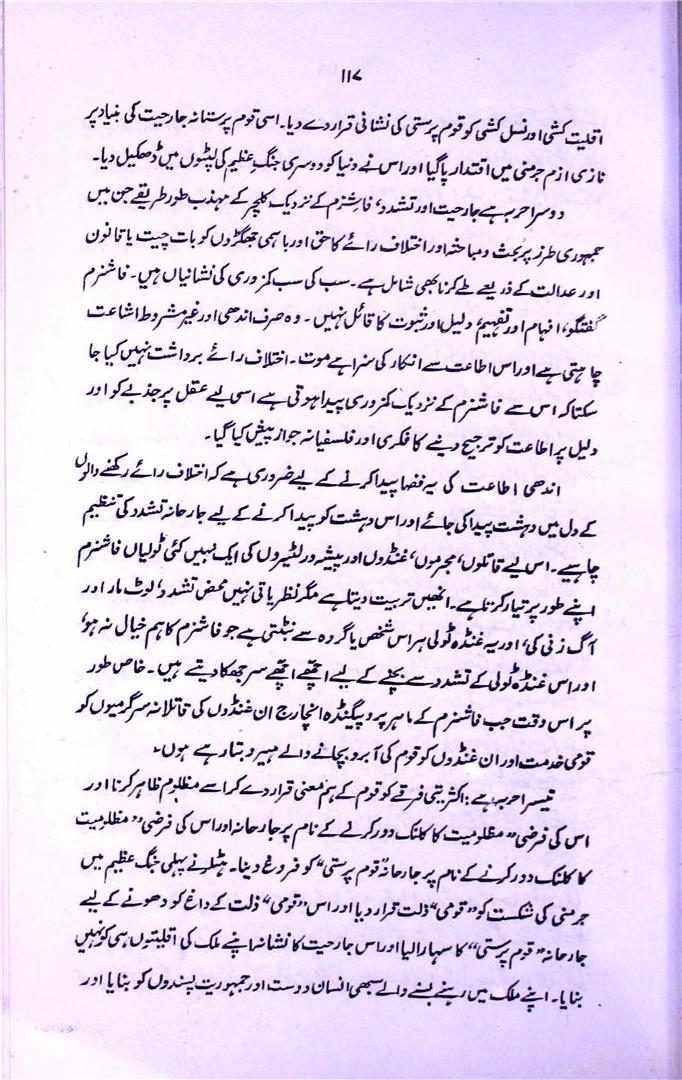 ۱۱۷
اقلیت کشی اور نسل کشی کو قوم پرستی کی نشانی قرار دے دیا۔ اسی قوم پرستانہ جارحیت کی بنیاد پر
نازی ازم جرمنی میں اقتدار پا گیا اور اس نے دنیا کو دوسری جنگ عظیم کی لپٹوں میں ڈھکیل دیا۔
دوسرا حربہ ہے جارحیت اور تشدد، فاشزم کے نزدیک کلچر کے مہذب طور طریقے جن میں
جمہوری طرز پر بحث و مباحثہ اور اختلاف رائے کا حق اور باہمی جھگڑوں کو بات چیت یا قانون
اور عدالت کے ذریعے طے کرنا بھی شامل ہے۔ سب کی سب کمزوری کی نشانیاں ہیں۔ فاشزم
گفتگو، افہام اور تفہیم، دلیل اور ثبوت کا قائل نہیں۔ وہ صرف اندھی اور غیر مشروط اشاعت
چاہتی ہے اور اس اطاعت سے انکار کی سزا ہے موت۔ اختلاف رائے برداشت نہیں کیا جا
سکتا کہ اس سے فاشزم کے نزدیک کمزوری پیدا ہوتی ہے اسی لیے عقل پر جذبے کو اور
دلیل پر اطاعت کو ترجیح دینے کا فکری اور فلسفیانہ جواز پیش کیا گیا۔
اندھی اطاعت کی یہ فضا پیدا کرنے کے لیے ضروری ہے کہ اختلاف رائے رکھنے والوں
کے دل میں دہشت پیدا کی جائے اور اس دہشت کو پیدا کرنے کے لیے جارحانہ تشدد کی تنظیم
چاہیے۔ اس لیے قاتلوں، مجرموں، غنڈوں اور پیشہ ور لٹیروں کی ایک نہیں کئی ٹولیاں فاشزم
اپنے طور پر تیار کرتا ہے۔ انھیں تربیت دیتا ہے مگر نظریاتی نہیں محض تشدد، لوٹ مار اور
آگ زنی کی، اور یہ غنڈہ ٹولی ہر اس شخص یا گروہ سے نبٹتی ہے جو فاشزم کا ہم خیال نہ ہو،
اور اس غنڈہ ٹولی کے تشدد سے بچنے کے لیے اچھے اچھے سر جھکا دیتے ہیں۔ خاص طور
پر اس وقت جب فاشزم کے ماہر پروپیگنڈہ انچارج ان غنڈوں کی قاتلانہ سرگرمیوں کو
قومی خدمت اور ان غنڈوں کو قوم کی آبرو بچانے والے ہیرو بتا رہے ہوں۔
تیسرا حربہ ہے: اکثریتی فرقے کو قوم کے ہم معنی قرار دے کر اسے مظلوم ظاہر کرنا اور
اس کی فرضی "مظلومیت کا کلنک دور کرنے کے نام پر جارحانہ اور اس کی فرضی "مظلومیت
کا کلنک دور کرنے کے نام پر جارحانہ "قوم پرستی" کو فروغ دینا۔ ہٹلر نے پہلی جنگ عظیم میں
جرمنی کی شکست کو "قومی" ذلت قرار دیا اور اس "قومی" ذلت کے داغ کو دھونے کے لیے
جارحانہ "قوم پرستی" کا سہارا لیا اور اس جارحیت کا نشانہ اپنے ملک کی اقلیتوں ہی کو نہیں
بنایا۔ اپنے ملک میں رہنے بسنے والے سبھی انسان دوست اور جمہوریت پسندوں کو بنایا اور